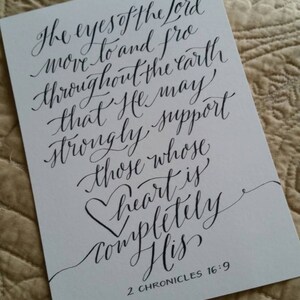 The eyes of the Lord
move to and fro
throughout the earth
that He may
strongly support
those whose
heart is
completely
His
2 CHRONICLES 16:9